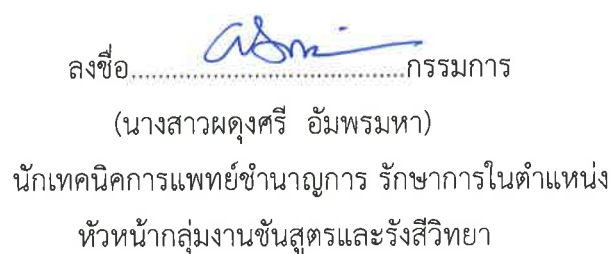 ลงชื่อ........................................กรรมการ
(นางสาวผดุงศรี อัมพรมหา)
นักเทคนิคการแพทย์ชำนาญการ รักษาการในตำแหน่ง
หัวหน้ากลุ่มงานชันสูตรและรังสีวิทยา